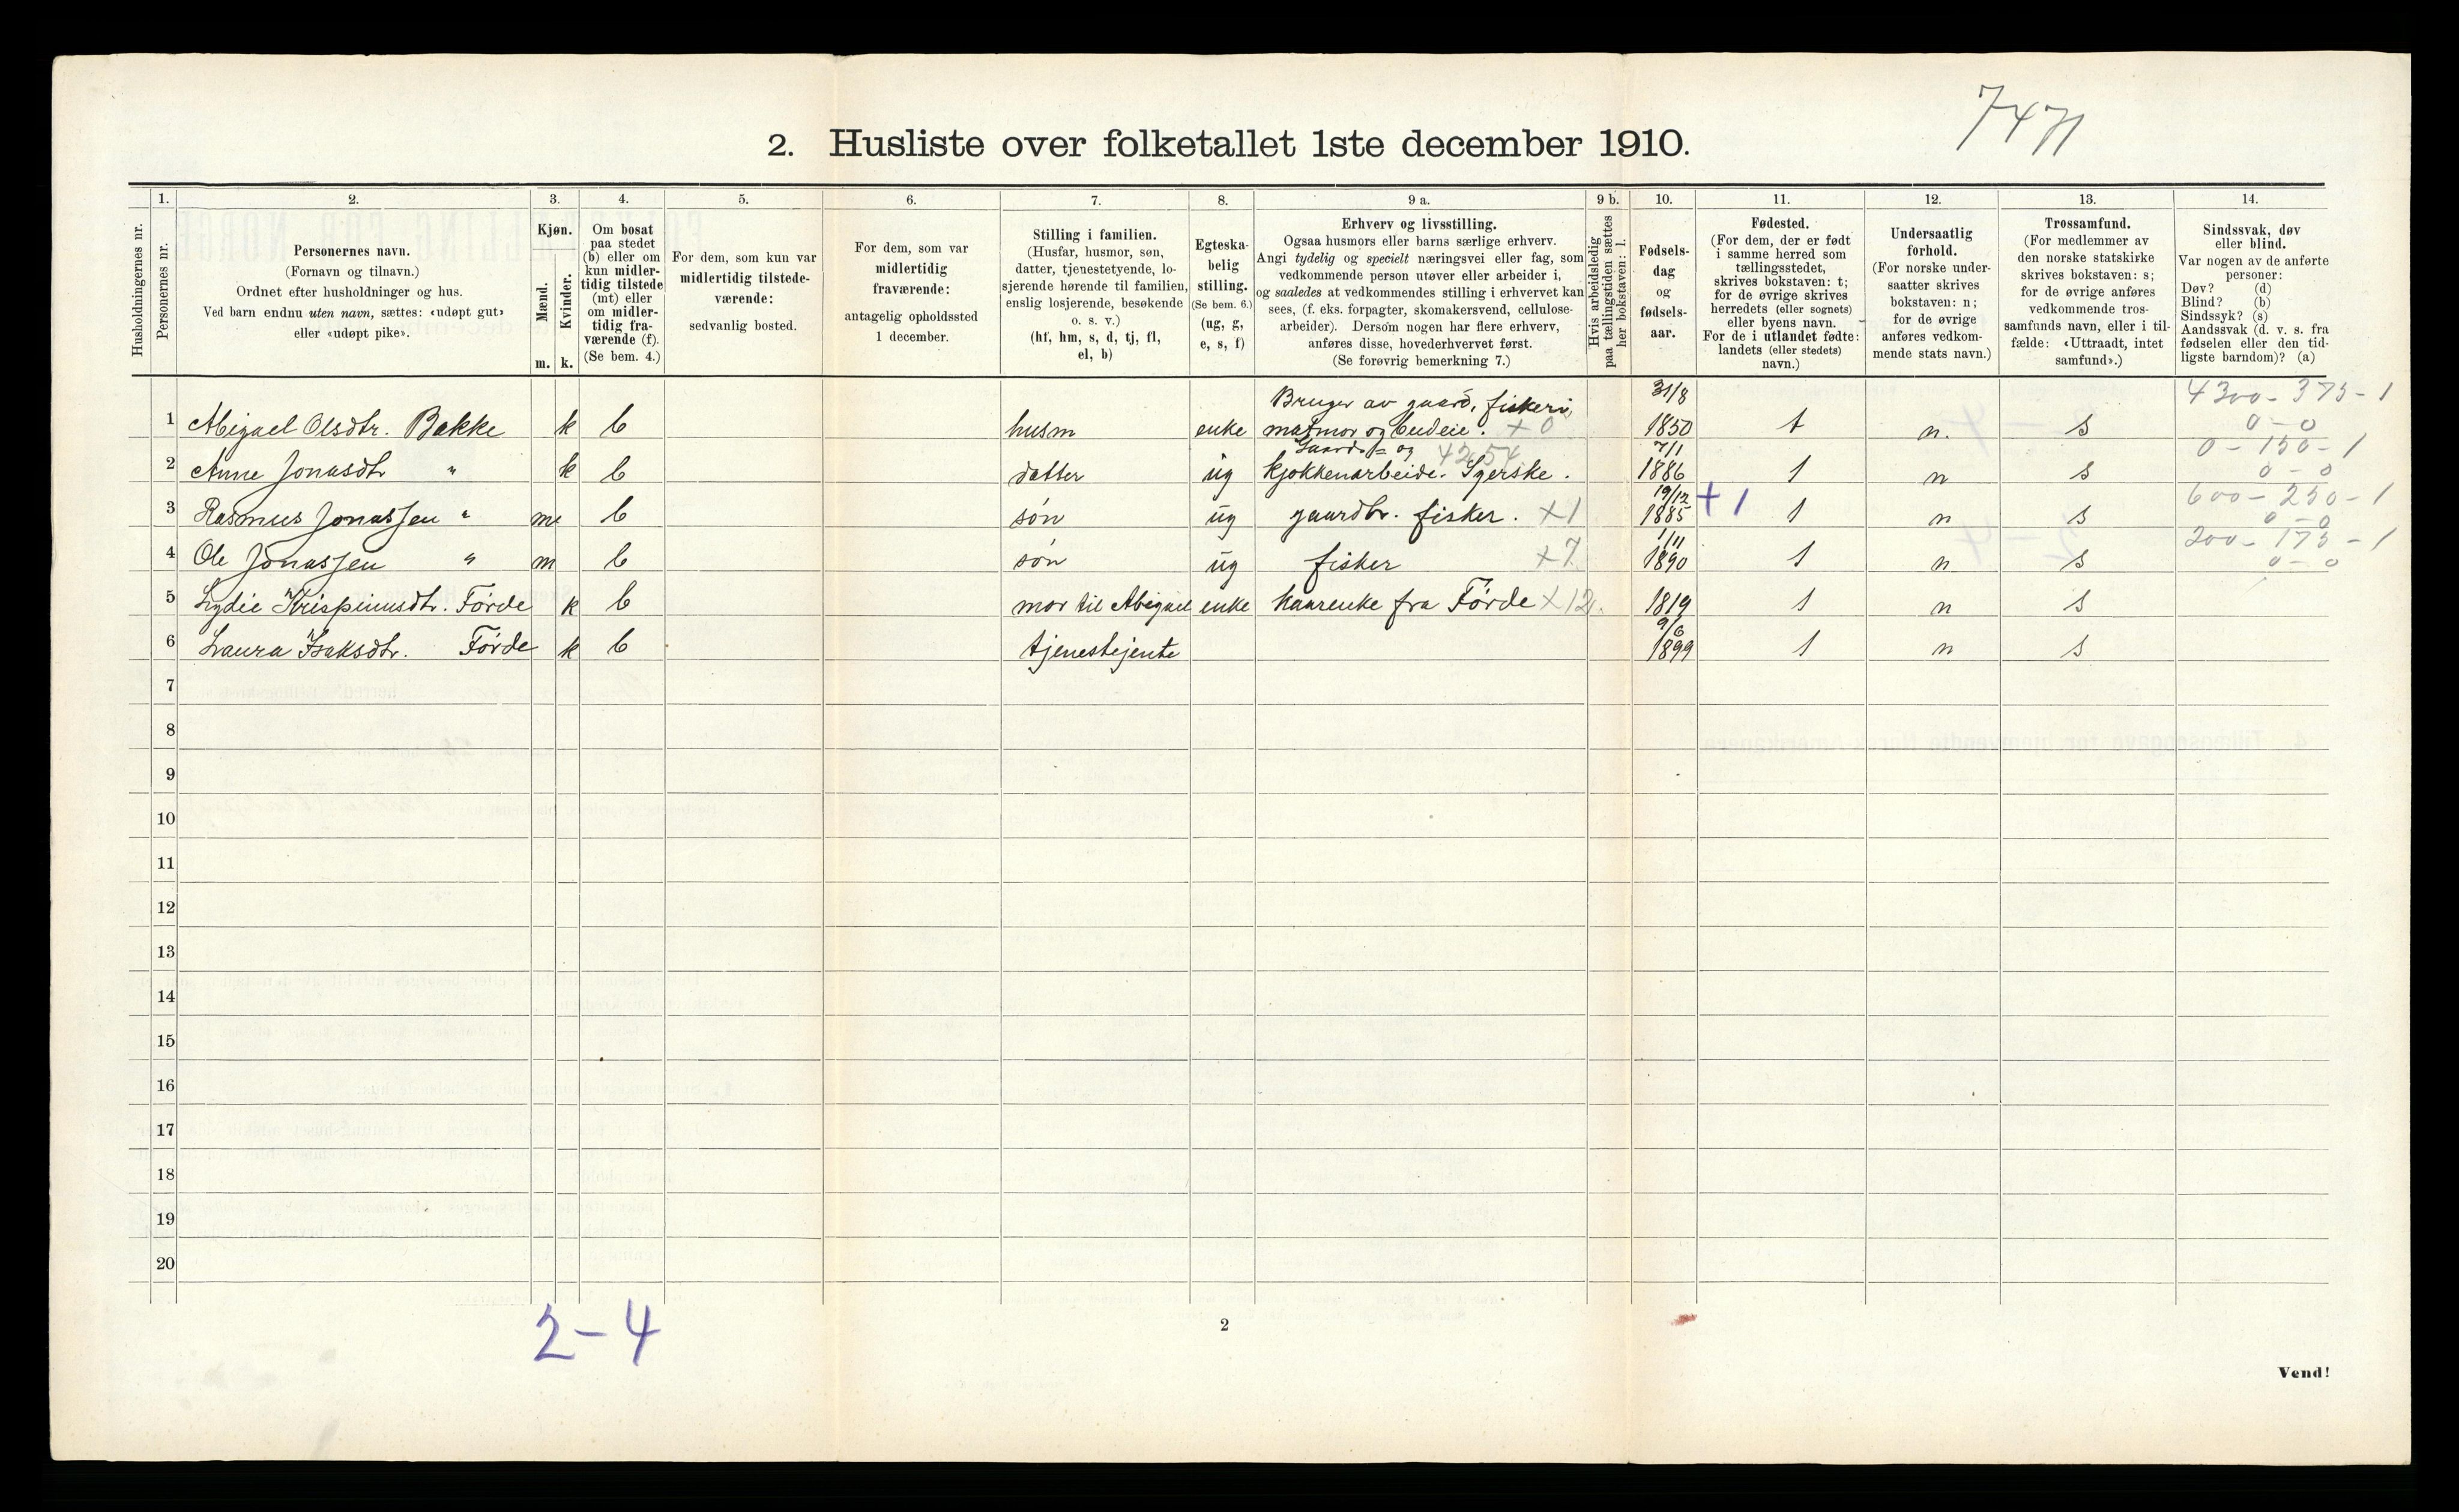 7471
2. Husliste over folketallet 1ste december 1910.
Husholdningernes nr.
1.
Personernes nr.
2.
Personernes navn.
(Fornavn og tilnavn.)
Ordnet efter husholdninger og hus.
Ved barn endnu uten navn, sættes: «udøpt gut»
eller «udøpt pike».
3.
Kjøn.
Mænd.
Kvinder.
m. k.
4.
Om bosat
paa stedet
(b) eller om
kun midler-
tidig tilstede
(mt) eller
om midler-
tidig fra-
værende (f).
(Se bem. 4.)
5.
For dem, som kun var
midlertidig tilstede-
værende:
sedvanlig bosted.
6.
For dem, som var
midlertidig
fraværende:
antagelig opholdssted
1 december.
7.
Stilling i familien.
(Husfar, husmor, søn,
datter, tjenestetyende, lo-
sjerende hørende til familien,
enslig losjerende, besøkende
o. s. v.)
(hf, hm, s, d, tj, fl,
el, b)
8.
Egteska-
belig
stilling.
(Se bem. 6.)
(ug, g,
e, s, f)
9 a.
Erhverv og livsstilling.
Ogsaa husmors eller barns særlige erhverv.
Angi tydelig og specielt næringsvei eller fag, som
vedkommende person utøver eller arbeider i,
og saaledes at vedkommendes stilling i erhvervet kan
sees, (f. eks. forpagter, skomakersvend, cellulose-
arbeider). Dersom nogen har flere erhverv,
anføres disse, hovederhvervet først.
(Se forøvrig bemerkning 7.)
9 b.
Hvis arbeidsledig
paa tællingstiden sættes
her bokstaven: l.
10.
Fødsels-
dag
og
fødsels-
aar.
11.
Fødested.
(For dem, der er født
i samme herred som
tællingsstedet,
skrives bokstaven: t;
for de øvrige skrives
herredets (eller sognets)
eller byens navn.
For de i utlandet fødte:
landets (eller stedets)
navn.)
12.
Undersaatlig
forhold.
(For norske under-
saatter skrives
bokstaven: n;
for de øvrige
anføres vedkom-
mende stats navn.)
13.
Trossamfund.
(For medlemmer av
den norske statskirke
skrives bokstaven: s;
for de øvrige anføres
vedkommende tros-
samfunds navn, eller i til-
fælde: «Uttraadt, intet
samfund».)
14.
Sindssvak, døv
eller blind.
Var nogen av de anførte
personer:
Døv? (d)
Blind? (b)
Sindssyk? (s)
Aandssvak (d. v. s. fra
fødselen eller den tid-
ligste barndom)? (a)
Bruger av gaard, fiskeri, 31/8 4300-375-1
1 Abigael Olsdtr. Bakke k b husm enke matmor og budeie. +0 1850 t n. s 0-0
Gaards= og 4254 7/1 0-150-1
2 Anne Jonasdtr " k b datter ug kjøkkenarbeide. Syerske. 1886 t n s 0-0
19/12 +1 600-250-1
3 Rasmus Jonassen " m b søn ug gaardbr. fisker. +1 1885 t n s 0-0
1/11 200-175-1
4 Ole Jonassen " m b søn ug fisker +7 1890 t n s 0-0
5 Lydie Krispinusdtr. Førde k b mor til Abigael enke kaarenke fra Førde +12 1819 t n s
9/6
6 Laura Isaksdtr. Førde k b tjenestejente 1899 t n s
7
8
9
10
11
12
13
14
15
16
17
18
19
20
2-4
2
Vend!